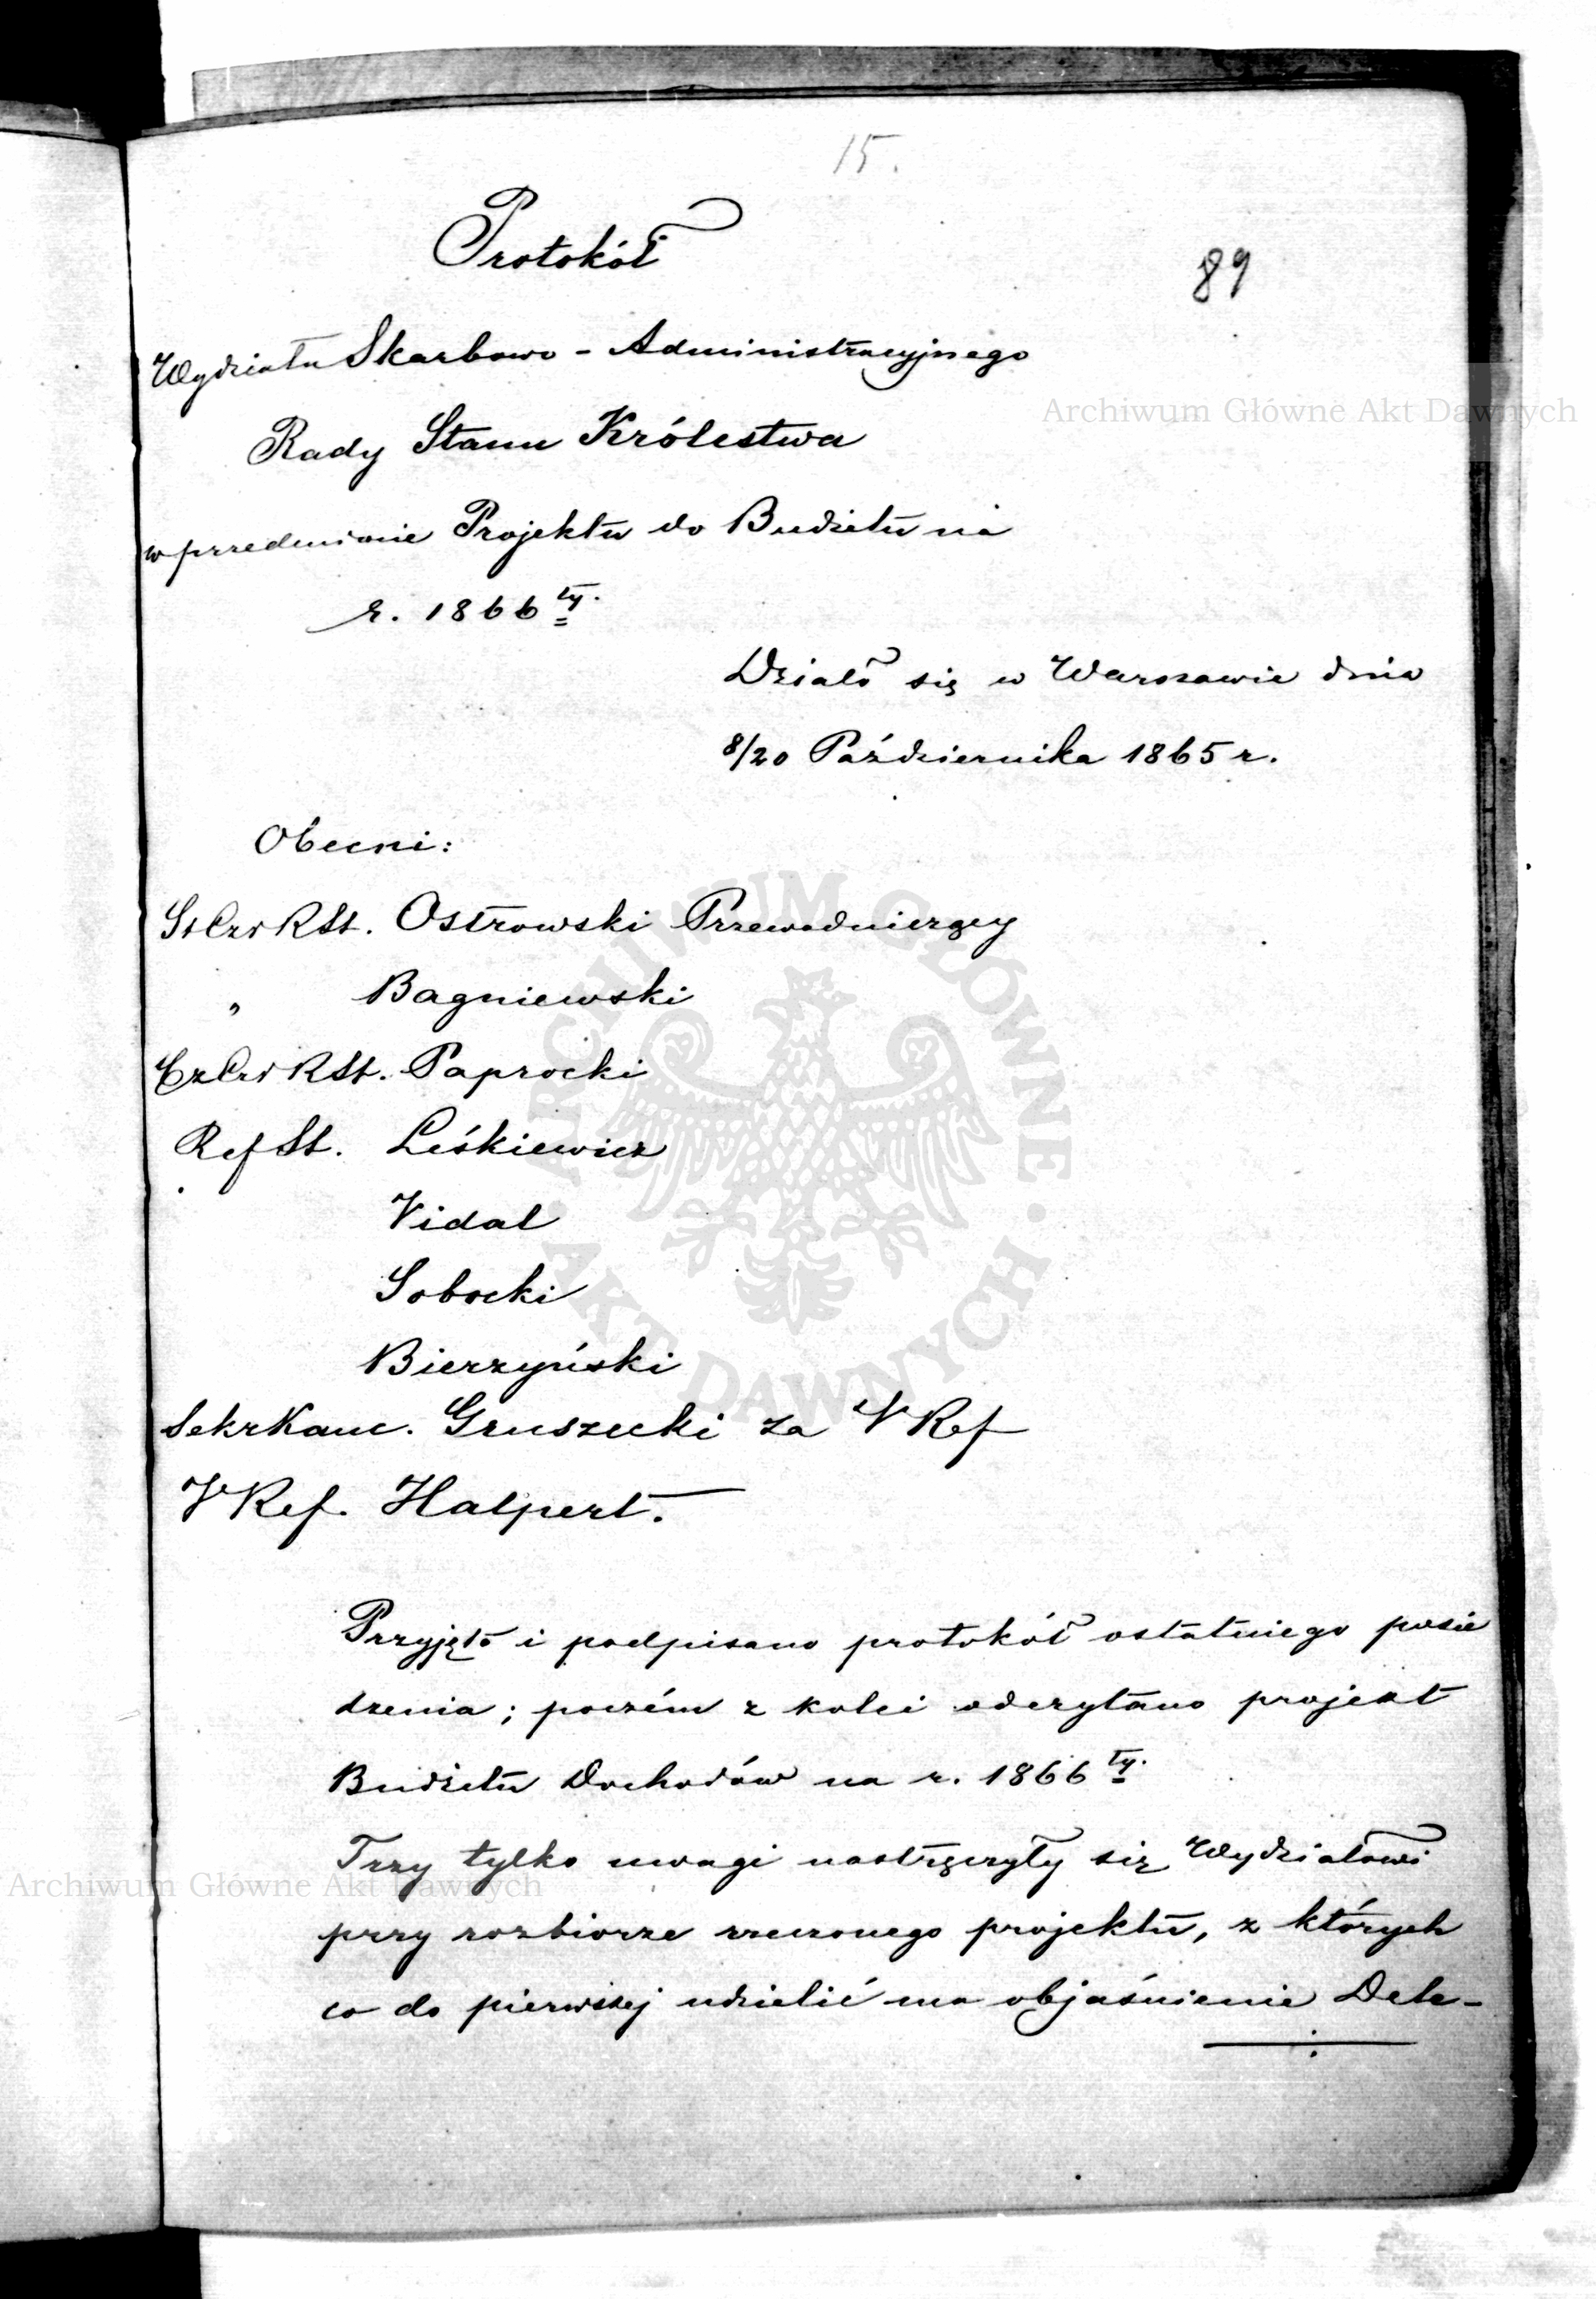 15.
Protokół
89
Wydziału Skarbowo - Administracyjnego
Archiwum Główne Akt Dawnych
Rady Stanu Królestwa
w przedmiocie Projektu do Budżetu na
r. 1866 ty.
Działo się w Warszawie dnia
8/20 Października 1865 r.
Obecni:
RSt. Ostrowski Przewodniczący
" Bagniewski
RSt. Paprocki
Ref St. Leśkiewicz
Vidal
Sobocki
Bierzyński
Sekr Kanc. Gruszecki za V Ref
V Ref. Halpert.
ARCHIWUM GŁÓWNE · AKT DAWNYCH ·
Przyjęto i podpisano protokół ostatniego posie
dzenia; poczém z kolei odczytano projekt
Budżetu Dochodów na r. 1866 ty.
Trzy tylko uwagi nastręczyły się Wydziałowi
Archiwum Główne Akt Dawnych
przy rozbiorze rzeczonego projektu, z których
co do pierwszej udzielić ma objaśnienie Dele-